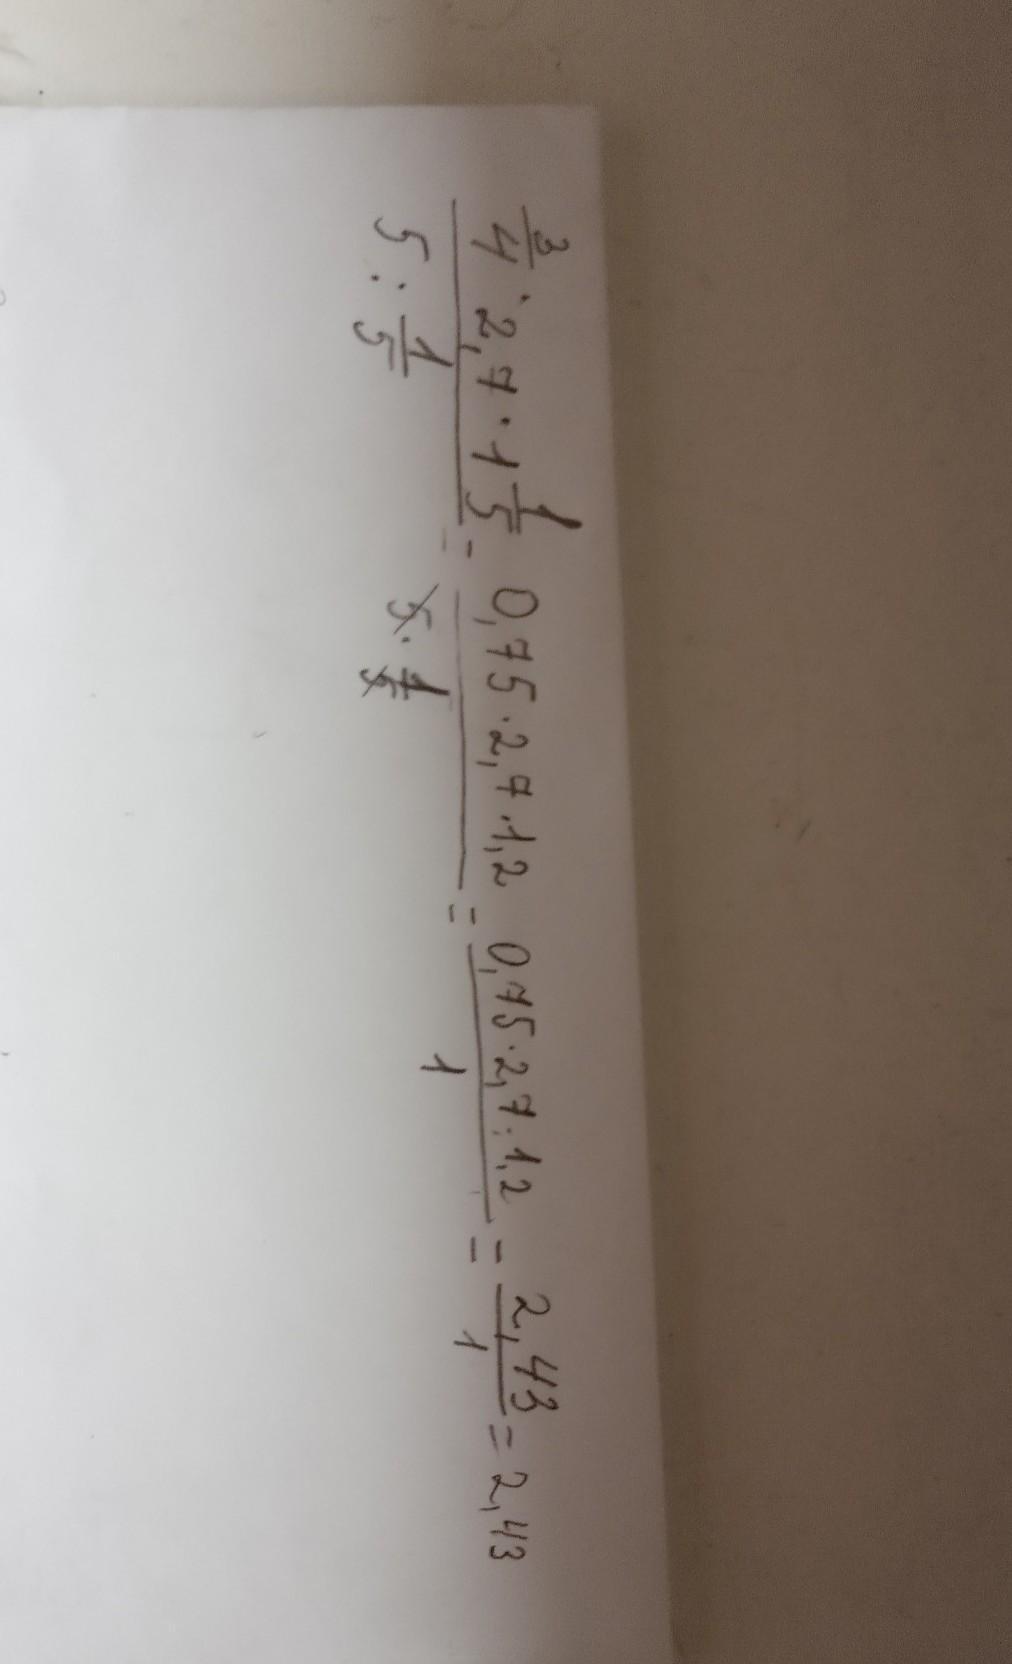 3/4 · 2,7 · 1 1/5 / 5 : 1/5 = 0,75 · 2,7 · 1,2 / 5 · 1/5 = 0,75 · 2,7 : 1,2 / 1 = 2,43 / 1 = 2,43